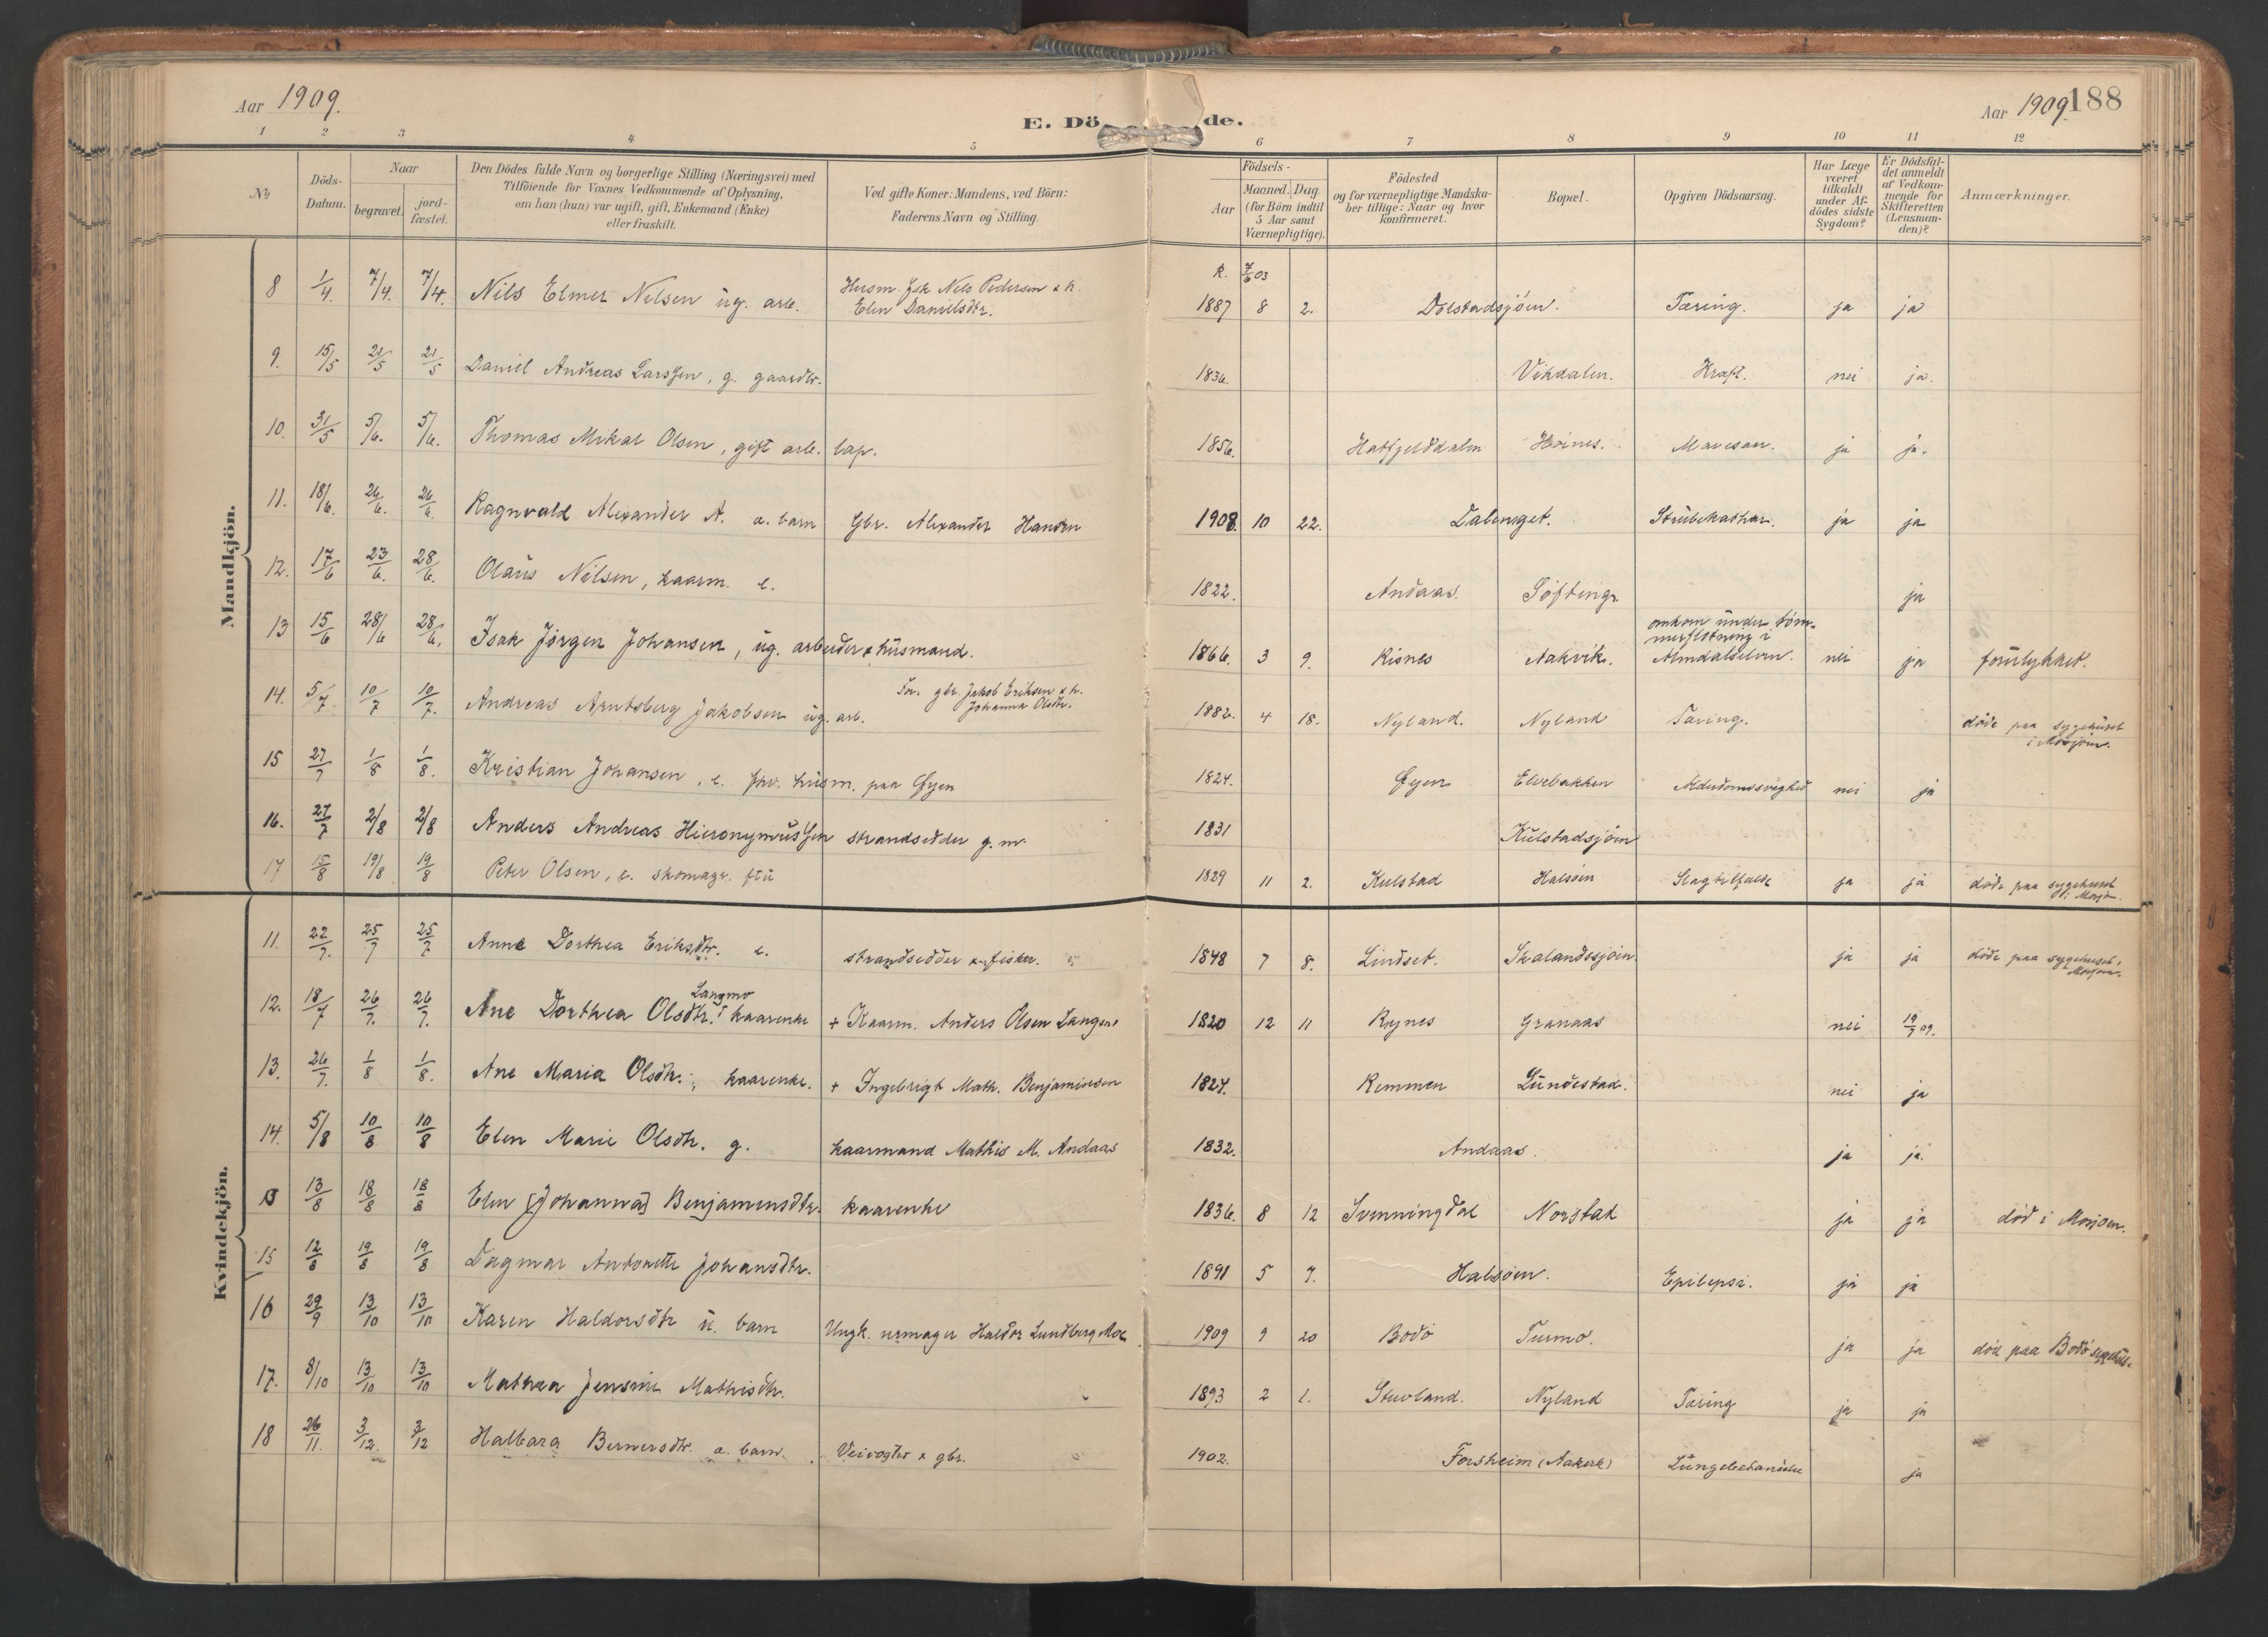 Aar 1909.
E. Dö de.
Aar 1909. 188
1 2 3 4 5 6 7 8 9 10 11 12
No
Döds-Datum.
Naar
begravet.
jord-fæstet.
Den Dödes fulde Navn og borgerlige Stilling (Næringsvei) med
Tilföiende for Voxnes Vedkommende af Oplysning,
om han (hun) var ugift, gift, Enkemand (Enke)
eller fraskilt.
Ved gifte Koner: Mandens, ved Börn:
Faderens Navn og Stilling.
Födsels-
Aar
Maaned. Dag.
(for Börn indtil
5 Aar samt
Værnepligtige).
Födested
og for værnepligtige Mandska-
ber tillige: Naar og hvor
konfirmeret.
Bopæl.
Opgiven Dödsaarsag.
Har Læge
været
tilkaldt
under Af-
dödes sidste
Sygdom?
Er Dödsfal-
det anmeldt
af Vedkom-
mende for
Skifteretten
(Lensman-
den)?
Anmærkninger.
Mandkjön.
8 1/4. 7/4. 7/4. Nils Elmer Nilsen ug. arb. Husm. Nels Pedersen & h. Elen Danielsdtr. K. 7/6 03 1887 8 2. Dolstadsjöen. Tæring. ja ja
9. 15/5 21/5 21/5 Daniel Andreas Larssen, g. gaardbr. 1836. Vikdalen. Kræft. nei ja.
10. 31/5 5/6. 5/6. Thomas Mikal Olsen, gift arb. lap. 1856. Hatfjelddalen Höines. Mavesaar. ja ja.
11. 18/6. 26/6. 26/6. Ragnvald Alexander A. a. barn Gbr. Alexander Hansen 1908. 10 22. Dalenget. Strubekathar. ja ja
12. 17/6 23/6. 28/6. Olaus Nilsen, kaarm. e. 1822. Andaas. Söfting. ja
13 15/6 28/6 28/6. Isak Jørgen Johansen, ug. arbeider & husmand. 1866. 3 9. Risnes Aakvik. omkom under töm-
merflötning i
Almdalselven. nei ja forulykket.
14. 5/7 10/7 10/7. Andreas Arntsberg Jakobsen ug. arb. For. gbr. Jakob Eriksen & h. Johanna Olsdtr. 1882. 4 18. Nyland. Nyland Tæring. döde paa sygehuset
i Mosjöen.
15 27/7 1/8 1/8. Kristian Johansen, e. fhv. husm. paa Øyen 1824. Øyen Elvebakken Alderdomssvaghed nei ja
16. 27/7 2/8 2/8 Anders Andreas Hieronymussen strandsidder g. m. 1831 Kulstadsjöen
17 15/8 19/8 19/8 Peter Olsen, e. skomagr. 1829 11 2. Kulstad Halsöen Slagtilfælde ja ja döde paa sygehuset
i Mosjön.
Kvindekjön.
11. 22/7. 25/7 25/7 Anne Dorthea Eriksdtr. e. strandsidder & fisker. 1848 7 8. Lindset. Skalandssjöen. ja ja döde paa sygehuset i
Mosjöen.
12. 18/7 26/7. 26/7. Ane Dorthea Olsdtr. Langmo kaarenke + Kaarm. Anders Olsen Langmo 1820 12 11 Rynes Granaas nei 19/7 09.
13. 26/7. 1/8 1/8. Ane Maria Olsdtr., kaarenke. + Ingebrigt Math. Benjaminsen 1824. Remmen Lundestad. nei ja
14. 5/8 10/8 10/8 Elen Marie Olsdtr. g. kaarmand Mathis M. Andaas 1832. Andaas. ja ja.
13/8 18/8 18/8 Elen [Johanna] Benjaminsdtr. kaarenke 1836. 8 12 Svenningdal Norstad ja ja död i Mosjöen.
15 12/8 19/8 19/8 Dagmar Antonette Johansdtr. 1891 5 7. Halsöen. Epilepsi. ja ja
16 29/9 13/10 13/10 Karen Haldorsdtr u. barn Ungk. urmager Haldor Lundberg Moe 1909 9 20 Bodö Turmo. ja ja död paa Bodö sygehus.
17. 8/10 13/10 13/10 Mathea Jensine Mathisdtr. 1893 2 1. Stuvland. Nyland Tæring ja ja
18 26/11. 3/12. 3/12 Halbara Bernersdtr. a. barn. Veivogter & gbr. 1902. Forsheim (Aakvik) Lungebetændelse ja